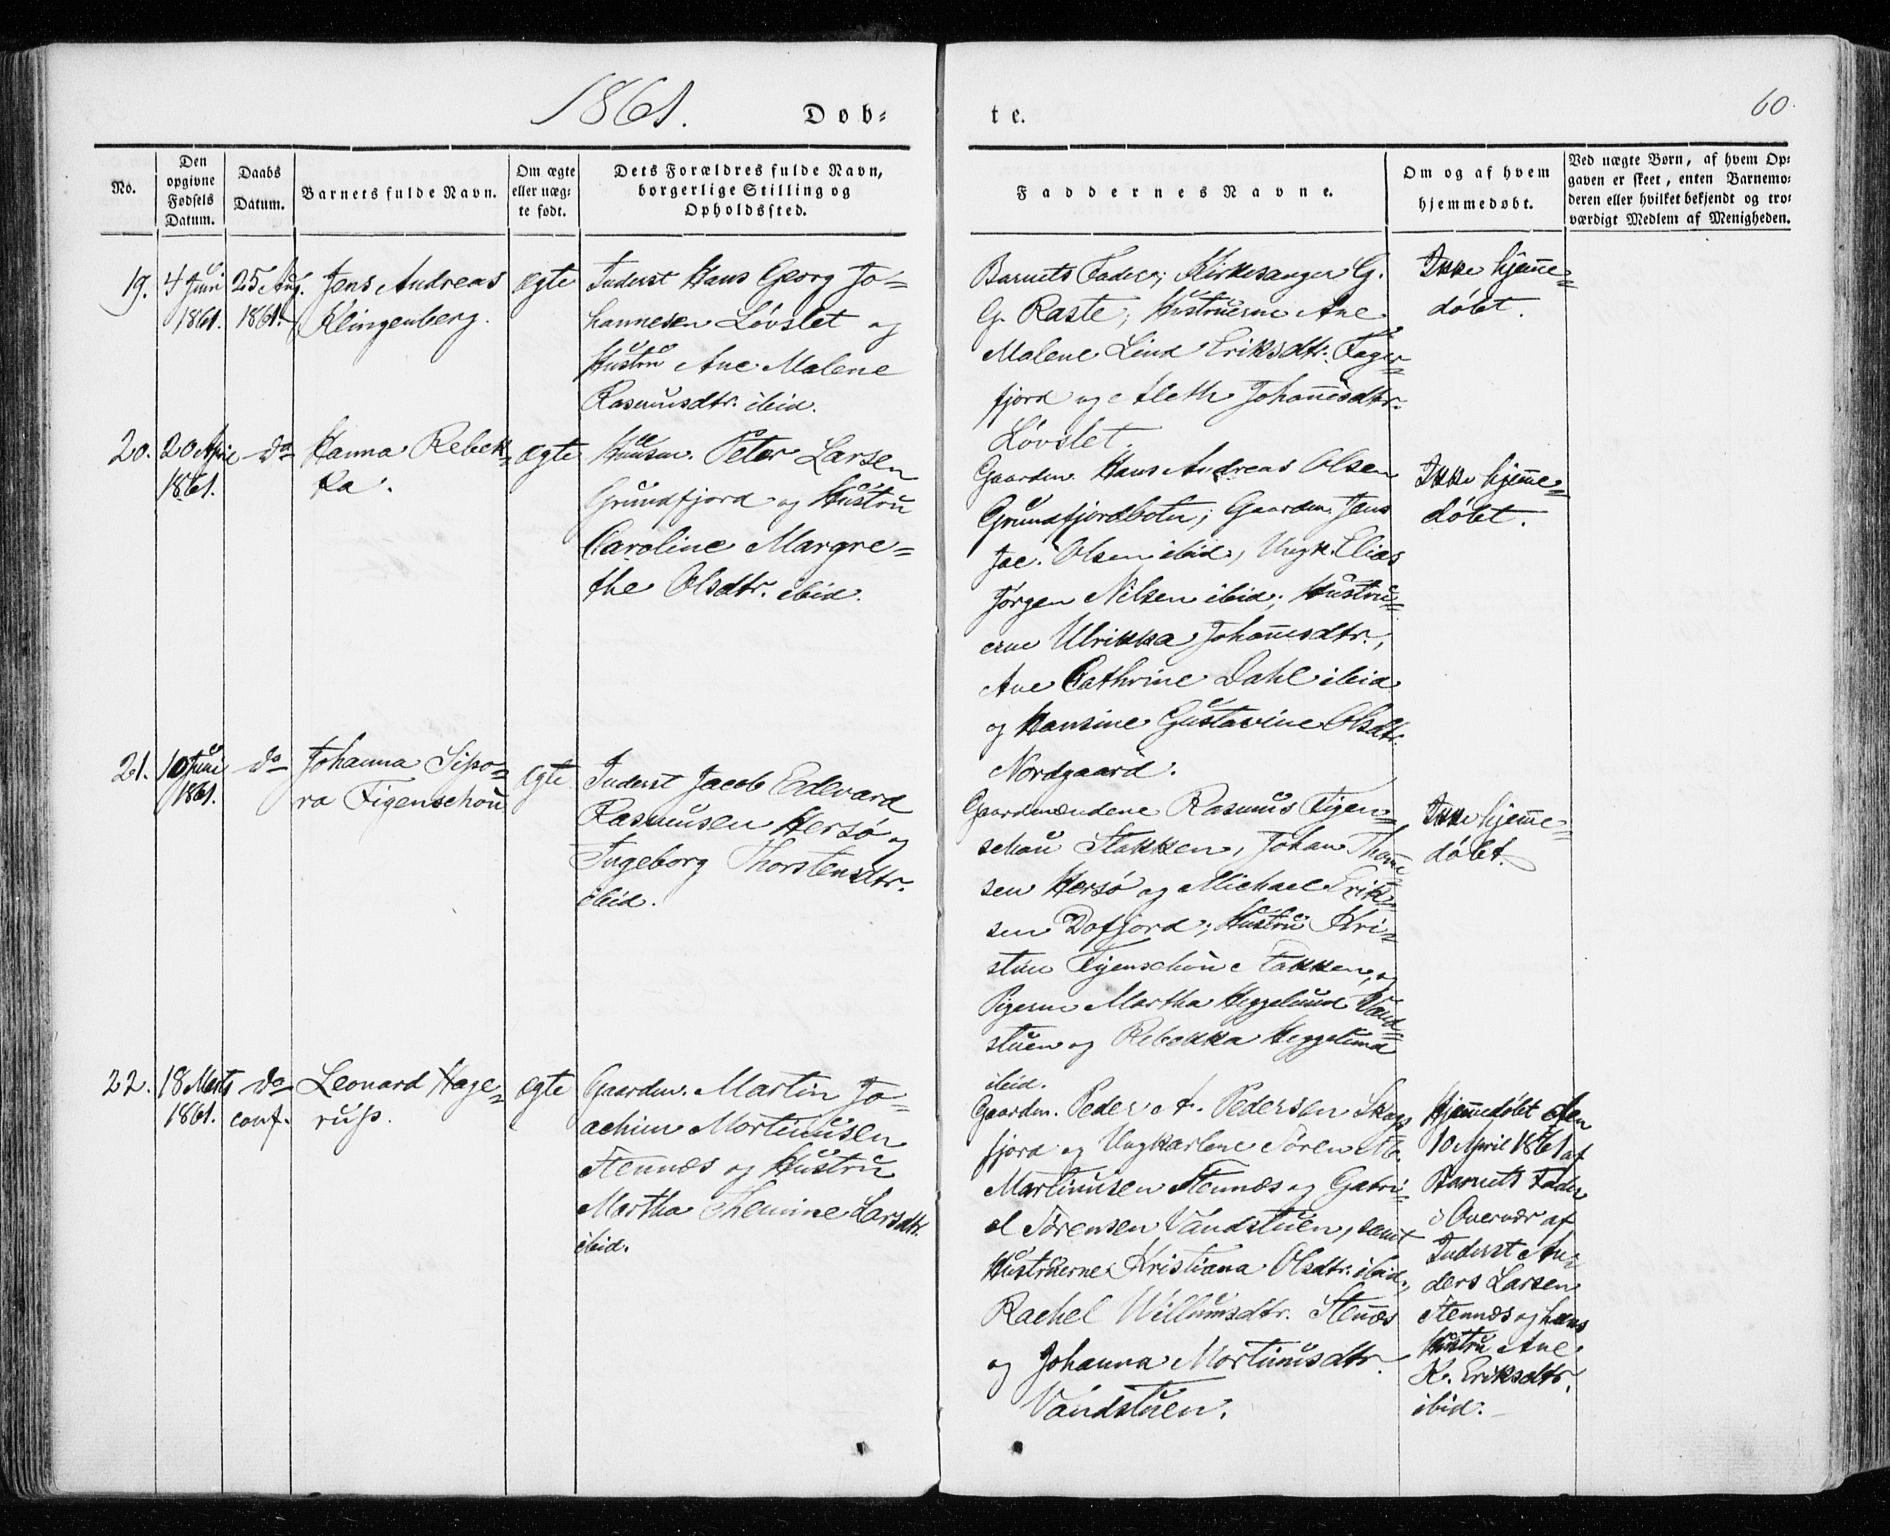 1861.
Døb-
te.
60.
No.
Den
opgivne
Fødsels
Datum.
Daabs
Datum.
Barnets fulde Navn.
Om ægte
eller uæg-
te født.
Dets Forældres fulde Navn,
borgerlige Stilling og
Opholdssted.
Faddernes Navne.
Om og af hvem
hjemmedøbt.
Ved uægte Børn, af hvem Op-
gaven er skeet, enten Barnemo-
deren eller hvilket bekjendt og tro-
værdigt Medlem af Menigheden.
19.
4 Juni
1861.
25 Aug.
1861.
Jens Andreas
Klingenberg.
ægte
Inderst Hans Georg Jo-
hannesen Løvslet og
Hustru Ane Malene
Rasmusdtr. ibid.
Barnets Fader; Kirkesanger G.
G. Raste; Hustruerne Ane
Malene Lind Eriksdtr. Fager-
fjord og Aleth Johañesdtr.
Løvslet.
Ikke hjem̃e-
døbt.
20.
20 April
1861.
do
Hanna Rebek-
ka.
ægte
Huusm. Peter Larsen
Grundfjord og Hustru
Caroline Margre-
the Olsdtr. ibid.
Gaardm. Hans Andreas Olsen
Grundfjordbotn; Gaardm. Jens
Jac. Olsen ibid, Ungk. Elias
Jørgen Nilsen ibid; Hustru-
erne Ulrikka Johañesdtr.,
Ane Cathrine Dahl ibid
og Hansine Gustavine Olsdtr.
Nordgaard.
Ikke hjem̃e-
døbt.
21.
10 Juni
1861.
do
Johanna Sipo-
ra Figenschou
ægte
Inderst Jacob Edvard
Rasmusen Hersø og
Ingeborg Thorstensdtr.
ibid.
Gaardmændene Rasmus Figen-
schou Stakken, Johan Thom̃e-
sen Hersø og Michael Erik-
sen Dafjord; Hustru Kri-
stine Figenschou Stakken, og
Pigerne Martha Heggelund Vand-
stuen og Rebekka Heggelund
ibid.
Ikke hjem̃e-
døbt.
22.
18 Marts
1861.
do
conf.
Leonard Hage-
rup.
ægte
Gaardm. Martin Jo-
achim Mortinusen
Stennæs og Hustru
Martha Themine Larsdtr.
ibid.
Gaardm. Peder A. Pedersen Skogs-
fjord og Ungkarlene Søren
Martinusen Stennæs og Gabri-
el Sørensen Vandstuen, samt
Hustruerne Kristiana Olsdtr. ibid,
Rachel Willumsdtr. Steñæs
og Johanna Mortinusdtr.
Vandstuen.
Hjem̃edøbt den
10 April 1861 af
Barnets Fader
i Overvær af
Inderst An-
ders Larsen
Stennæs og hans
Hustru Ane
K. Eriksdtr.
ibid.